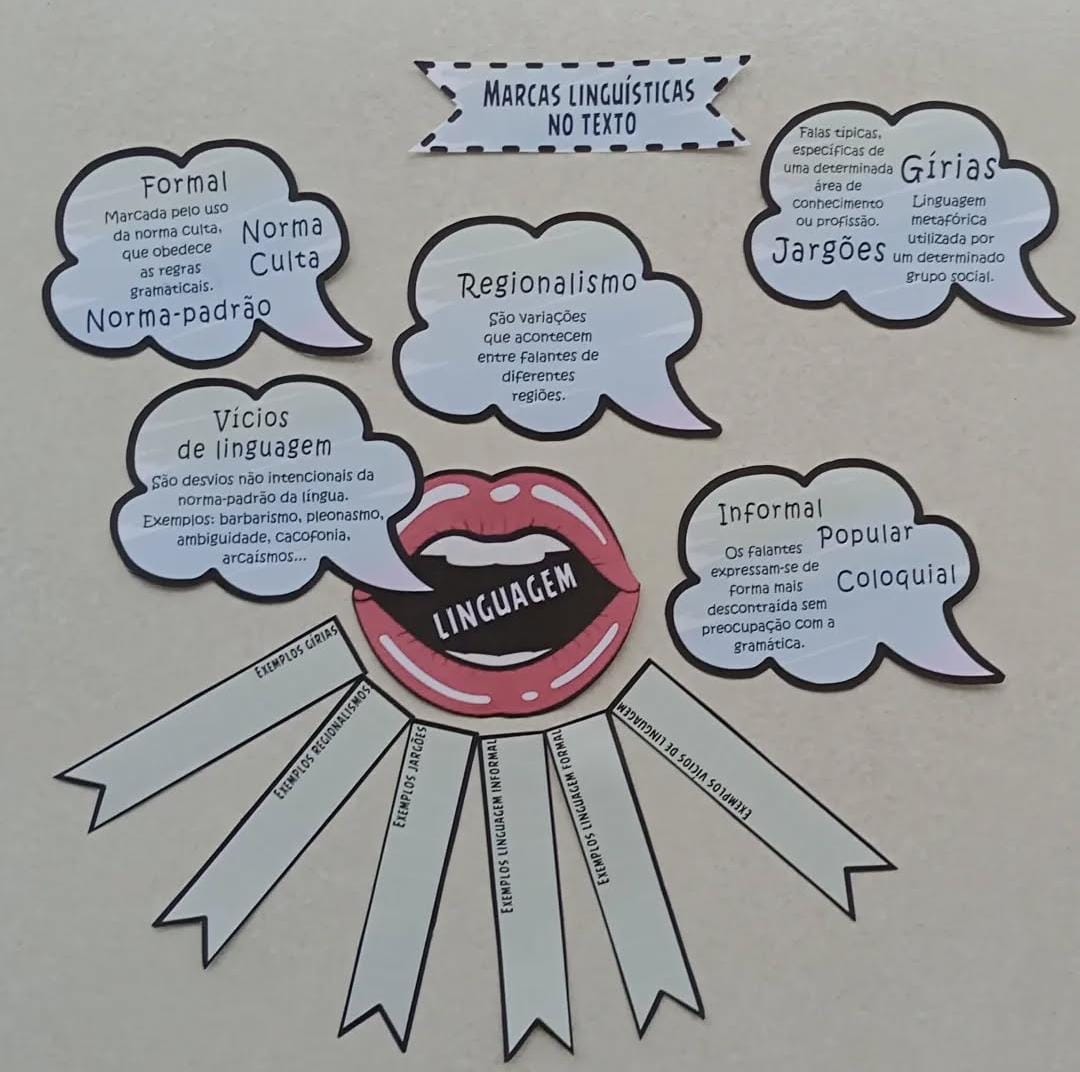 MARCAS LINGUÍSTICAS
NO TEXTO
Formal
Marcada pelo uso
da norma culta,
que obedece
as regras
gramaticais.
Norma
Culta
Norma-padrão
Regionalismo
São variações
que acontecem
entre falantes de
diferentes
regiões.
Falas típicas,
específicas de
uma determinada
área de
conhecimento
ou profissão.
Jargões
Gírias
Linguagem
metafórica
utilizada por
um determinado
grupo social.
Vícios
de linguagem
São desvios não intencionais da
norma-padrão da língua.
Exemplos: barbarismo, pleonasmo,
ambiguidade, cacofonia,
arcaísmos...
LINGUAGEM
Informal
Popular
Coloquial
Os falantes
expressam-se de
forma mais
descontraída sem
preocupação com a
gramática.
EXEMPLOS GÍRIAS
EXEMPLOS REGIONALISMOS
EXEMPLOS JARGÕES
EXEMPLOS LINGUAGEM INFORMAL
EXEMPLOS LINGUAGEM FORMAL
EXEMPLOS VÍCIOS DE LINGUAGEM